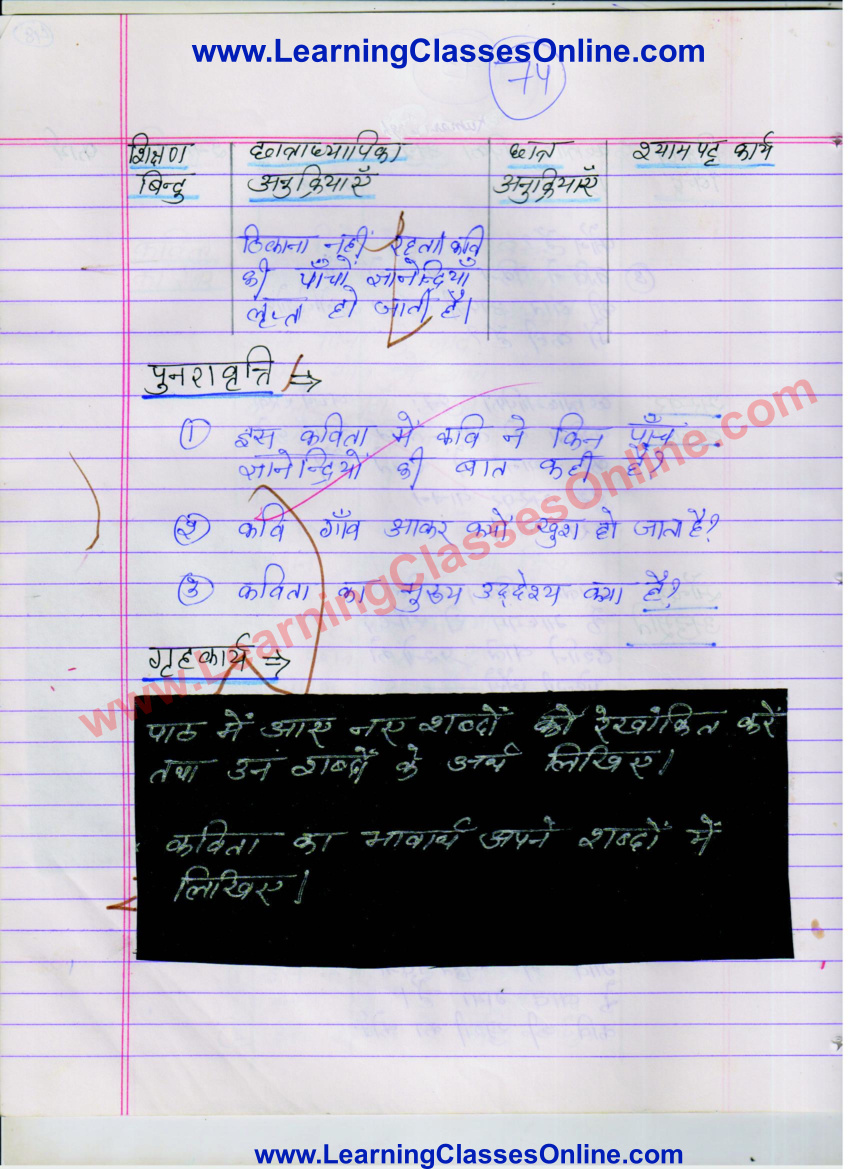 www.LearningClassesOnline.com
74
शिक्षण छात्राध्यापिका छात्र श्यामपट्ट कार्य
बिन्दु अनुक्रियाएँ अनुक्रियाएँ
ठिकाना नहीं रहता। कवि
की पाँचों ज्ञानेन्द्रियाँ
तृप्त हो जाती हैं।
पुनरावृत्ति ⇒
① इस कविता में कवि ने किन पाँच
ज्ञानेन्द्रियों की बात कही है?
② कवि गाँव आकर क्यों खुश हो जाता है?
③ कविता का मुख्य उद्देश्य क्या है?
www.LearningClassesOnline.com
गृहकार्य ⇒
पाठ में आए नए शब्दों को रेखांकित करें
तथा उन शब्दों के अर्थ लिखिए।
कविता का भावार्थ अपने शब्दों में
लिखिए।
www.LearningClassesOnline.com